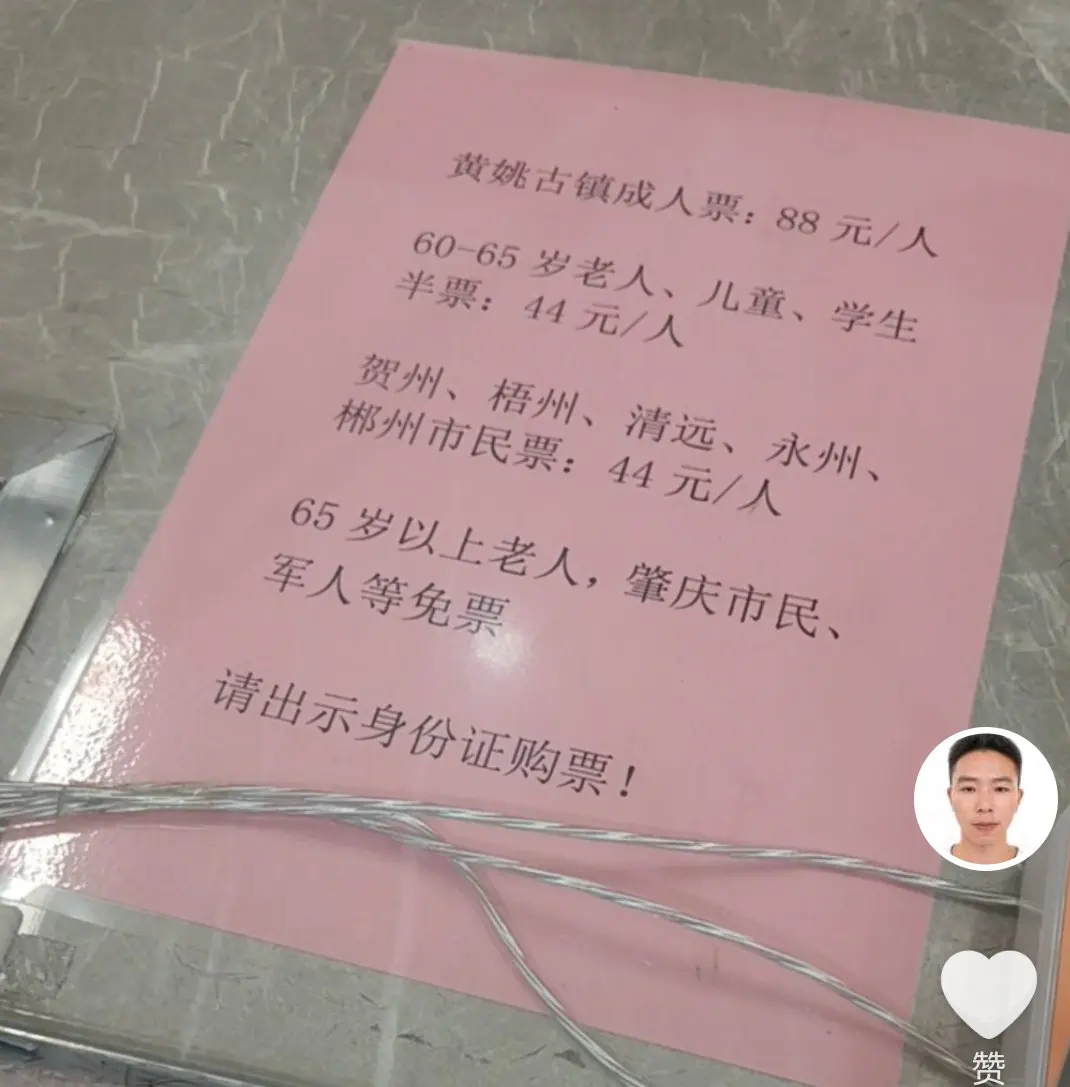 黄姚古镇成人票：88 元/人
60-65 岁老人、儿童、学生
半票：44 元/人
贺州、梧州、清远、永州、
郴州市民票：44 元/人
65 岁以上老人，肇庆市民、
军人等免票
请出示身份证购票！
赞